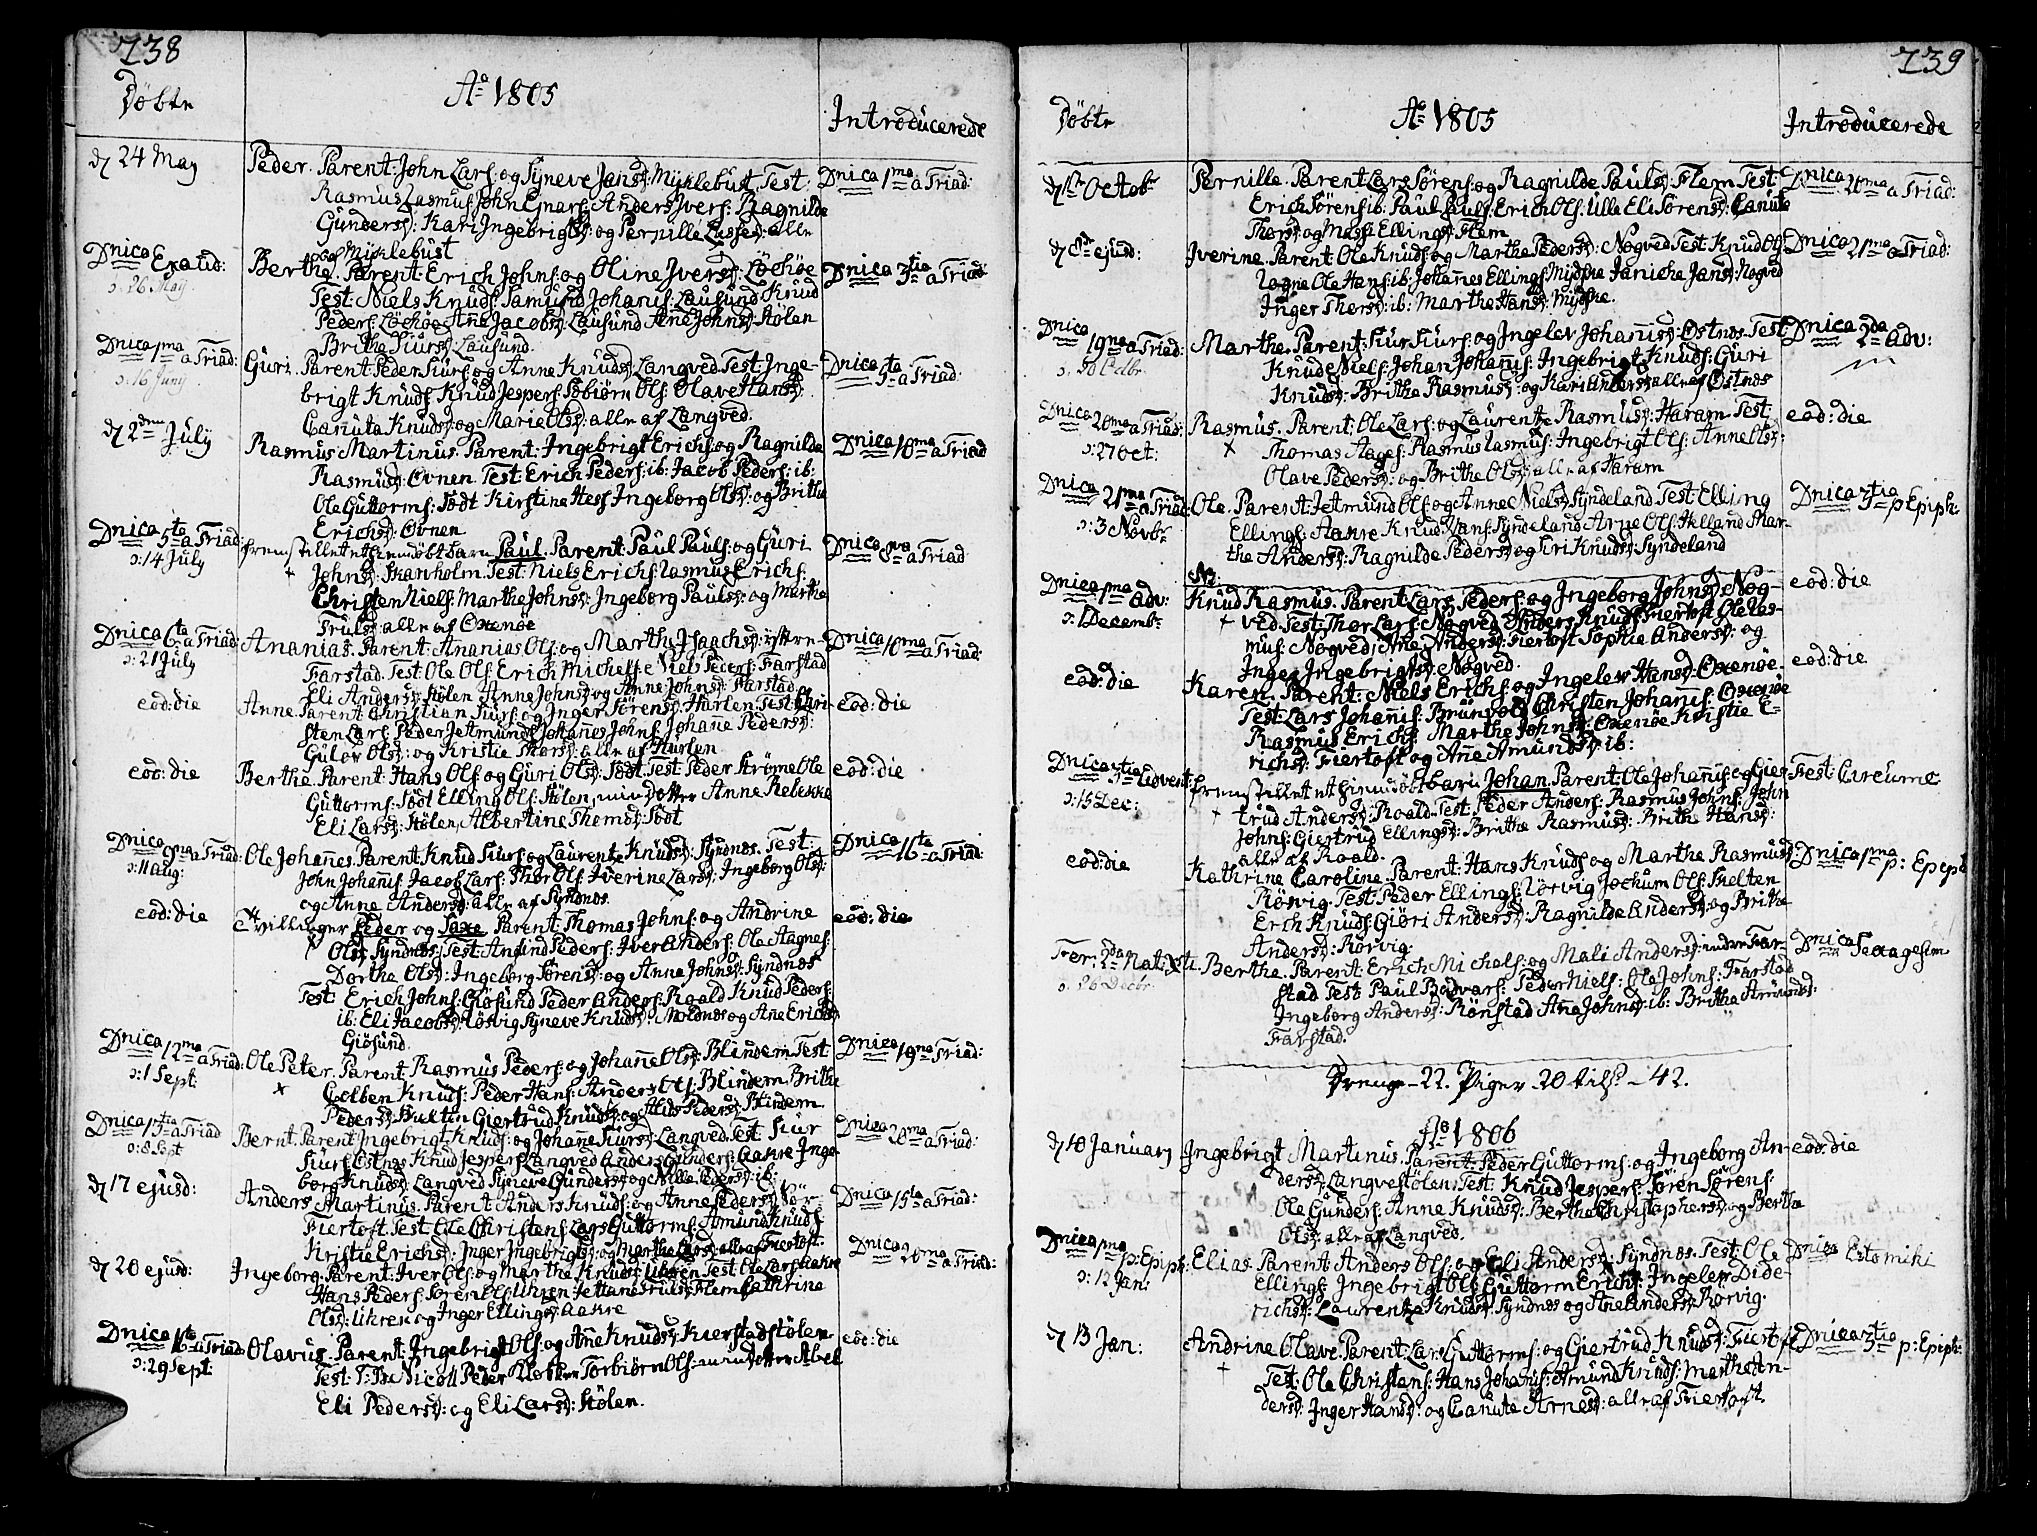 138
Döbte
Aº 1805
Introducerede
d 24 May
Peder. Parent: John Lars: og Syneve Jansd: Myklebust. Test:
Dnica 1ma a Triad:
Rasmus Rasmus: John Ejnars: Anders Ivers: Ragnilde
Gundersd: Kari Ingebrigtsd: og Pernille Lassesd: alle
af Myklebust
Dnica Exaud:
ɔ: 26 May.
Berthe. Parent: Erich Johns: og Oline Iversd: Löchöe
Dnica 3tia a Triad:
Test: Niels Knuds: Samund Johanis: Lausund Knud
Peders: Löchöe Ane Jacobsd: Lausund Ane Johnsd: Stölen
Brithe Siursd: Lausund.
Dnica 1ma a Triad:
ɔ: 16 Juny.
Guri. Parent: Peder Siurs: og Anne Knudsd: Langved. Test: Inge-
Dnica 5ta a Triad:
brigt Knuds: Knud Jespers: Töbiörn Ols: Olave Hansd:
Canuta Knudsd: og Marie Olsd: alle af Langved.
d 2den July
Rasmus Martinus. Parent: Ingebrigt Erichs: og Ragnilde
Dnica 10ma a Triad
Rasmusd: Ovnen Test: Erich Peders: ib: Jacob Peders: ib:
Ole Guttorms: Södt Kirstine Hess Ingeborg Olsd: og Brithe
Erichsd: Ovnen
Dnica 5ta a Triad:
ɔ: 14 July
fremstillet et hiemdöbt barn Paul. Parent: Paul Pauls: og Guri
Dnica 8va a Triad
Johnsd: Skarholm. Test: Niels Erichs: Rasmus Erichs:
Christen Niels: Marthe Johnsd: Ingeborg Paulsd: og Marthe
Trulsd: alle af Oxenöe
Dnica 6ta a Triad:
ɔ: 21 July
Ananias. Parent: Ananias Ols: og Marthe Isaachsd: yttre
Dnica 10ma a Triad:
Farstad. Test: Ole Ols: Erich Michels: Niels Peders: Farstad
Eli Andersd: Stölen Anne Johnsd: og Anne Johnsd: Farstad.
eod: die
Anne. Parent: Christian Siurs: og Inger Sörensd: Hurlen. Test: Chri-
eod: die
sten Lars: Peder Jetmunds: Johanes Johns: Johane Pedersd:
Gulöv Olsd: og Kristie Thorsd: alle af Hurlen
eod: die
Berthe. Parent: Hans Ols: og Guri Olsd: Södt. Test: Peder Ströme Ole
eod: die
Guttorms: Södt Elling Ols: Stölen, min datter Anne Rebekke
Eli Larsd: Stölen, Albertine Thomasd: Södt
Dnica 9na a Triad:
ɔ: 11 Aug:
Ole Johannes. Parent: Knud Siurs: og Laurentze Knudsd: Syndnes. Test:
Dnica 16ta a Triad:
John Johanis: Jacob Lars: Thor Ols: Iverine Larsd: Ingeborg Olsd:
og Anne Andersd: alle af Syndnes.
eod: die
Tvillinger Peder og Saxe. Parent: Thomas Johns: og Andrine
eod: die
Olsd: Syndnes: Test: Amund Peders: Iver Anders: Ole Aagnes:
Dorthe Olsd: Ingeborg Sörensd: og Anne Johnsd: Syndnes
Test: Erich Johns: Giösund Peder Anders: Roald Knud Peders:
ib: Eli Jacobsd: Rösvig Syneve Knudsd: Moldnes og Ane Erichsd:
Giösund.
Dnica 12ma a Triad:
ɔ: 1 Sept:
Ole Peter. Parent: Rasmus Peders: og Johane Olsd: Blindem Test
Dnica 19na a Triad:
Colben Knuds: Peder Hans: Anders Ols: Blindem Brithe
Pedersd: Hultin Giertrud Knudsd: og Alis Pedersd: Blindem.
Dnica 13tia a Triad
ɔ: 8 Sept
Bernt. Parent: Ingebrigt Knuds: og Johane Siursd: Langved. Test: Siur
Dnica 20ma a Triad:
Siurs: Östnes Knud Jespers: Langved Anders Gunders: Aakre Inge-
borg Knudsd: Langved Syneve Gundersd: og Nille Pedersd: ib:
d 17 ejusd:
Anders Martinus. Parent: Anders Knuds: og Anne Pedersd:
Dnica 15ta a Triad:
Fiertoft. Test: Ole Christens: Lars Guttorms: Amund Knuds:
Kristie Erichsd: Inger Ingebrigtsd: og Marthe Larsd: alle af Fiertoft.
d 20 ejusd:
Ingeborg. Parent: Iver Ols: og Marthe Knudsd: Uhren Test: Ole Lars: Aakre
Dnica 20ma a Triad:
Hans Peders: Sören Ols: Uhren Jettane Trulsd: Flem Cathrine
Olsd: Uhren og Inger Ellingsd: Aakre
Dnica 16ta a Triad
ɔ: 29 Sept:
Olavus. Parent: Ingebrigt Ols: og Ane Knudsd: Kierstadstölen
eod: die
Test: Nicoll Peder Torbiörn Ols: min datter Abel
Eli Pedersd: og Eli Larsd: Stölen.
139
Döbte
Aº 1805
Introducerede
d 1ste Octobr
Pernille. Parent: Lars Sörens: og Ragnilde Paulsd: Flem Test:
Dnica 20ma a Triad:
Erich Sörens: ib: Paul Pauls: Erich Ols: Ulle Eli Sörensd: Canute
Thorsd: og Massi Ellingsd: Flem
d 8de ejusd:
Iverine. Parent: Ole Knuds: og Marthe Pedersd: Nogved Test: Knud Ols:
Dnica 21ma a Triad:
Rogne Ole Hans: ib: Johannes Ellings: Mydske Janiche Jansd: Nogved
Inger Thorsd: ib: Marthe Hansd: Mydske.
Dnica 19na a Triad:
ɔ: 20 Octbr
Marthe. Parent: Siur Siurs: og Ingelev Johanisd: Östnes. Test:
Dnica 2da Adv:
Knud Niels: Johan Johanis: Ingebrigt Knuds: Guri
Knudsd: Brithe Rasmusd: og Kari Andersd: alle af Östnes
Dnica 20ma a Triad:
ɔ: 27 Oct:
Rasmus. Parent: Ole Lars: og Laurentze Rasmusd: Haram Test:
eod: die
Thomas Aages: Rasmus Rasmus: Ingebrigt Ols: Anne Olsd:
Olave Pedersd: og Brithe Olsd: alle af Haram
Dnica 21ma a Triad:
ɔ: 3 Novbr
Ole. Parent: Jetmund Ols: og Anne Nielsd: Syndeland. Test: Elling
Dnica 3tia p Epiph:
Ellings: Aakre Knud Hans: Syndeland Arne Ols: Helland Mar-
the Andersd: Ragnilde Pedersd: og Siri Knudsd: Syndeland
Dnica 1ma Adv:
ɔ: 1 Decembr
Knud Rasmus. Parent: Lars Peders: og Ingeborg Johnsd: Nog-
eod: die
ved. Test: Thor Lars: Nogved Anders Knuds: Fiertoft Ole Ras-
mus: Nogved, Ane Andersd: Fiertoft Sophie Andersd: og
Inger Ingebrigtsd: Nogved.
eod: die
Karen. Parent: Niels Erichs: og Ingelev Hansd: Oxenöe.
eod: die
Test: Lars Johanis: Brunvold Christen Johanis: Oxenöe
Rasmus Erichs: Marthe Johnsd: Oxenöe Kristie E-
richsd: Fiertoft og Ane Amundsd: ib:
Dnica 3tia Advent:
ɔ: 15 Dec:
fremstillet et hiemdöbt barn Johan. Parent: Ole Johanis: og Gier-
Fest: Circumc
trud Andersd: Roald. Test: Peder Anders: Rasmus Johns: John
Johns: Giertrud Ellingsd: Brithe Rasmusd: Brithe Hansd:
alle af Roald.
eod: die
Kathrine Caroline. Parent: Hans Knuds: og Marthe Rasmusd:
Dnica 1ma p: Epiph
Rörvig. Test: Peder Ellings: Rörvig Jochum Ols: Skelten
Erich Knuds: Giöri Andersd: Ragnilde Andersd: og Brithe
Andersd: Rörvig.
Fer: 2da Nativit.
ɔ: 26 Decbr
Berthe. Parent: Erich Michels: og Mali Andersd: indre Far-
Dnica Sexagesim
stad Test: Paul Bodvars: Peder Niels: Ole Johns: Farstad
Ingeborg Andersd: Rönstad Ane Johnsd: ib: Brithe Amundsd:
Farstad.
Drenge - 22. Piger 20 tils: - 42.
Aº 1806
d 10 January
Ingebrigt Martinus. Parent: Peder Guttorms: og Ingeborg An-
eod: die
dersd: Langvestölen. Test: Knud Jespers: Sören Sörens:
Ole Gunders: Anne Knudsd: Berthe Christophersd: og Berthe
Olsd: alle af Langved.
Dnica 1ma p: Epiph:
ɔ: 12 Jan:
Elias. Parent: Anders Ols: og Eli Andersd: Syndnes. Test: Ole
Dnica Estomihi
Ellings: Ingebrigt Ols: Guttorm Erichs: Ingelev Dide-
richsd: Laurentze Knudsd: Syndnes og Ane Andersd: Rörvig.
d 13 Jan:
Andrine Olave. Parent: Lars Guttorms: og Giertrud Knudsd: Fiertoft
Dnica 3tia p: Epiph:
Test: Ole Christens: Hans Johanis: Amund Knuds: Marthe An-
dersd: Inger Hansd: og Canute Arnesd: alle af Fiertoft